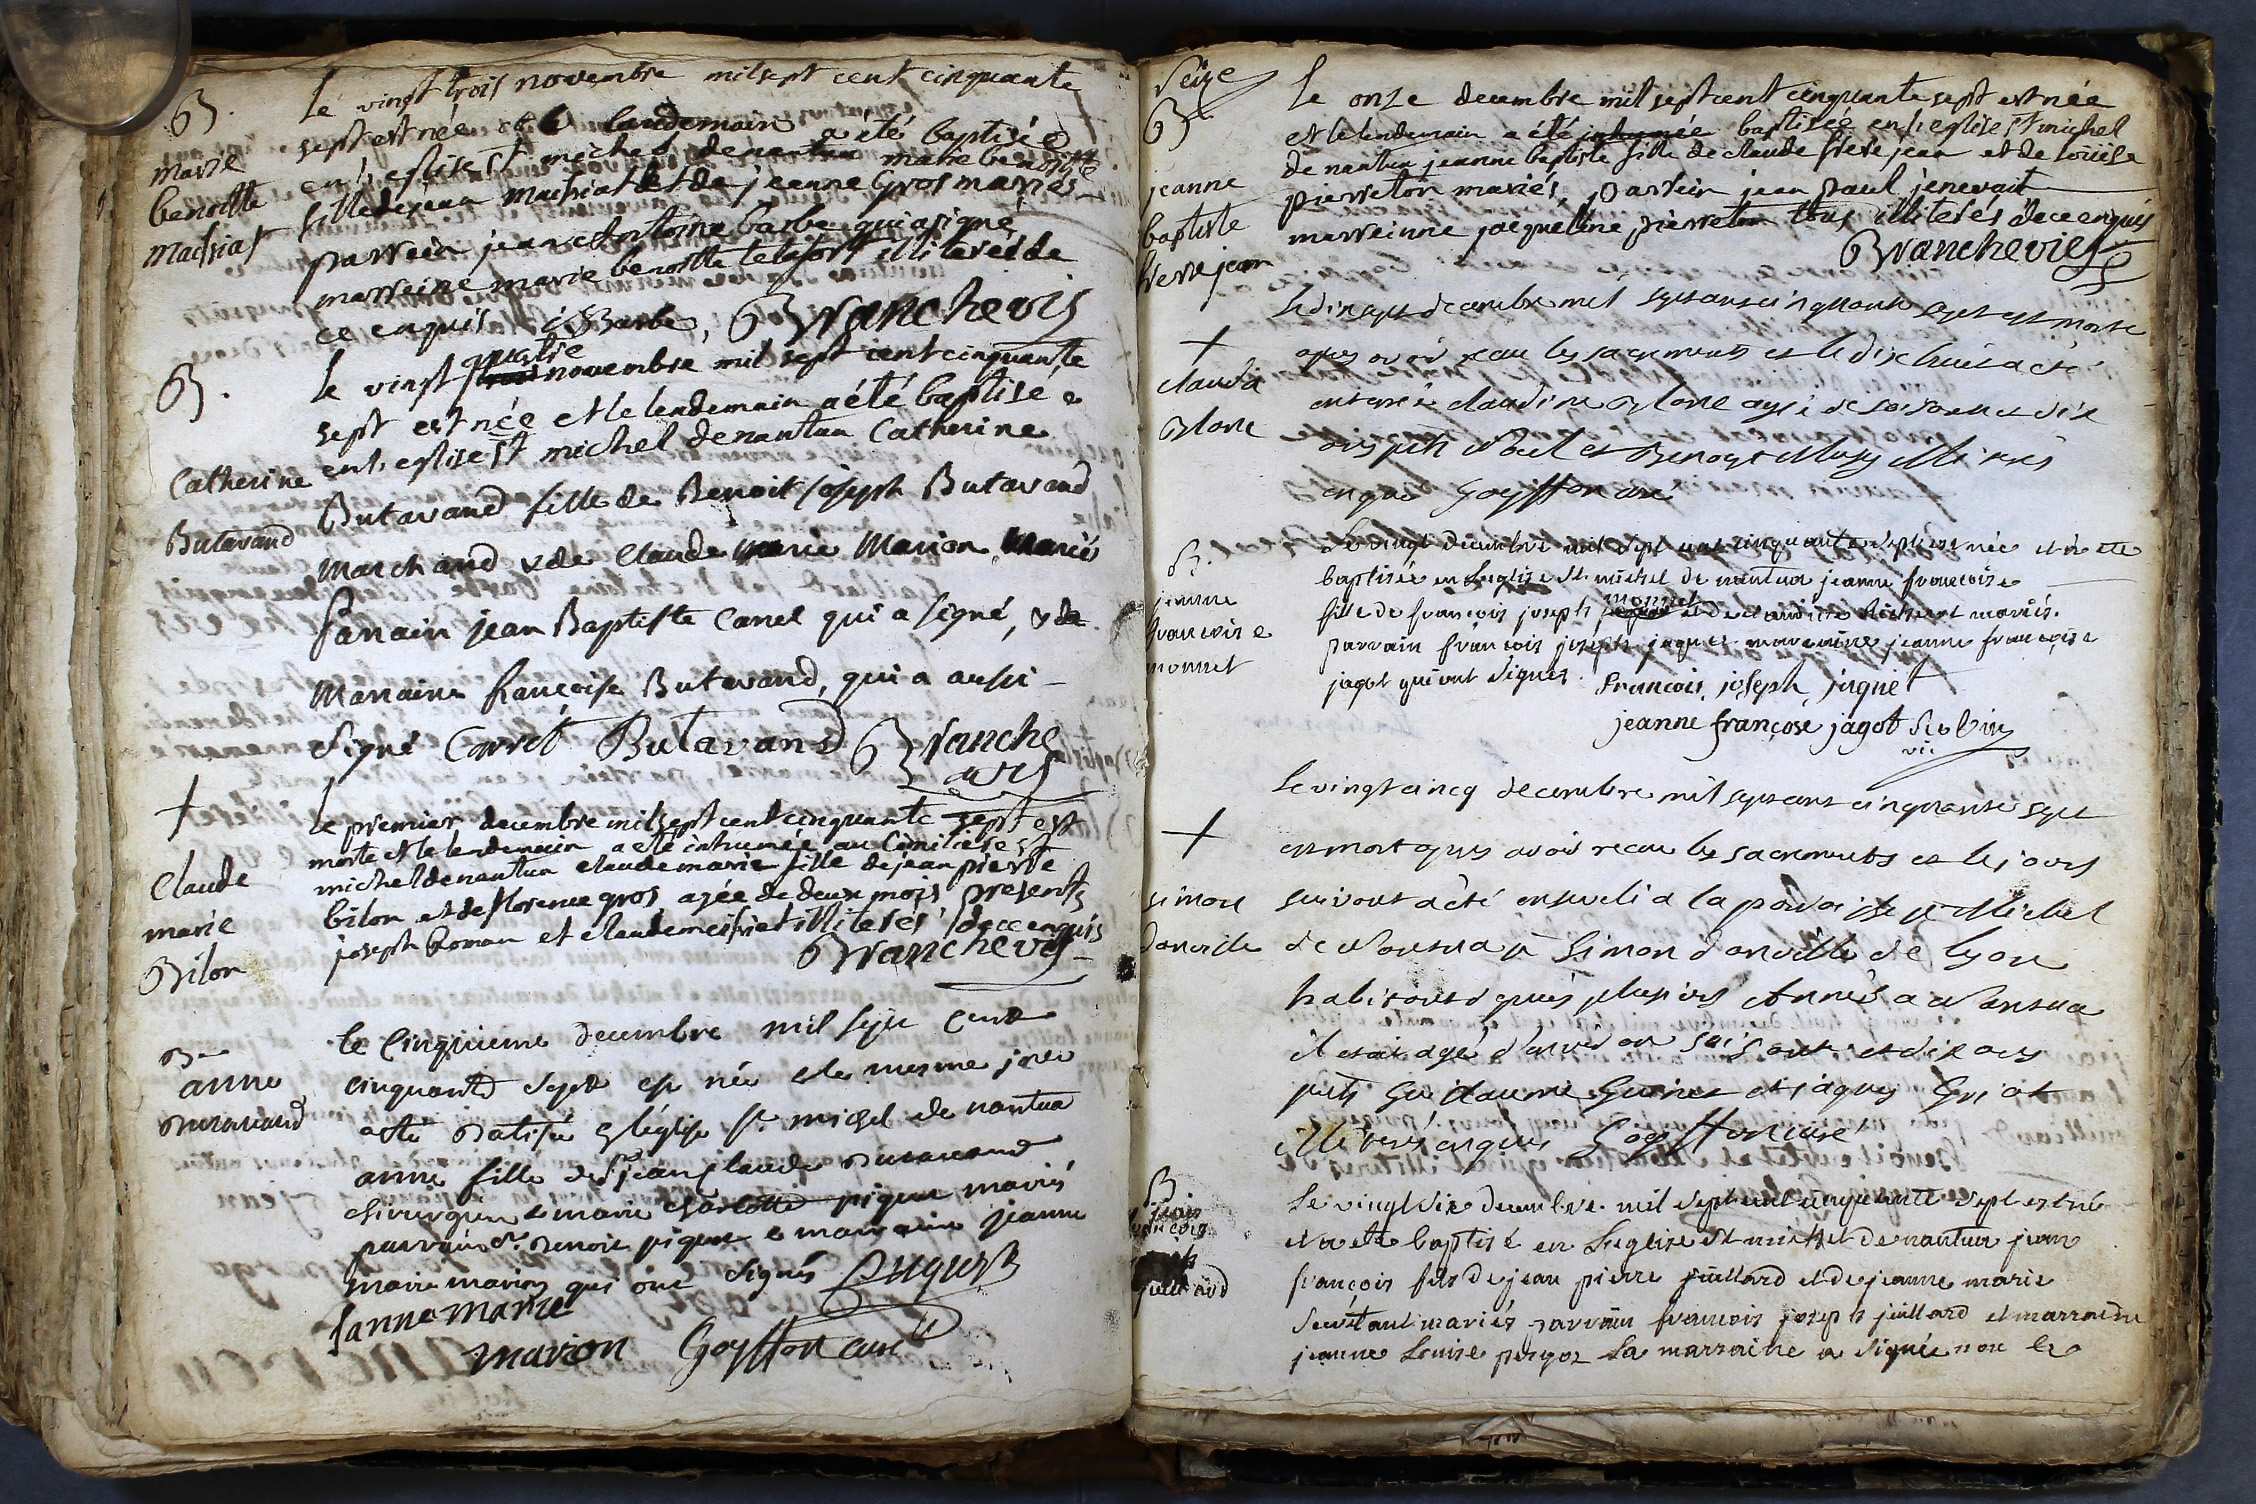 B.
marie
benoitte
machiat
Le vingt trois novembre mil sept cent cinquante
sept est née et le landemain a été baptisée
en l'eglise St michel de nantua marie benoitte
fille de jean machiat et de jeanne Gros mariés
parrein jean Antoine barbe qui a signé
marreine marie benoitte telifort illiterés de
ce enquis Barbe, Branche vis
B.
Catherine
Butavand
Le vingt quatre novembre mil sept cent cinquante
sept est née et le lendemain a été baptisée
en l'eglise St michel de nantua Catherine
Butavand fille de Benoit joseph Butavand
Marchand & de Claude Marie Marion Mariés
Parrain jean Baptiste Carret qui a signé, & de
Marraine françoise Butavand, qui a aussi
Signé Carret Butavand Branche
vis
+
Claude
marie
Bilon
Le premier decembre mil sept cent cinquante sept est
morte et le lendemain a eté inhumée au Cimitiere St
michel de nantua claude marie fille de jean pierre
bilon et de florence gros agée de deux mois presents
joseph Roman et claude illiterés de ce enquis
Branche vis
B
anne
Butavand
Le Cinquieme decembre mil sept cent
cinquante sept est née & le mesme jour
a été Batisée en l'église St michel de nantua
anne fille de Sr jean Claude Butavand
chirurgien & marie charlotte piquet mariés
parrain Sr Benoit piquet & marraine jeanne
marie marion qui ont signés Piquet
janne marie
marion Goyffon curé
Seize
B
jeanne
baptiste
frere jean
Le onze decembre mil sept cent cinquante sept est née
et le lendemain a été inhumée baptisée en l'eglise St michel
de nantua jeanne baptiste fille de claude frere jean et de Loüise
pierreton mariés, parrein jean paul jenevait
marreinne jacqueline pierreton tous illiterés de ce enquis
Branche vies
+
claudi
Blanc
Le dix sept decembre mil sept cens cinquante sept est morte
apres avoir recau les sacrements et le dix huit a été
enterrée claudine Blanc agée de soisante et dix
ans pnts Noel et Benoyt Musy illitérés
enquis Goyffon curé
B.
jeanne
francoise
monnet
Le vingt decembre mil sept cent cinquante sept est née et a ete
baptisée en L'eglise St. michel de nantua jeanne francoise
fille de francois joseph monnet et de claudine Richerot mariés.
parrain francois joseph jaquet marreine jeanne francoise
jagot qui ont signés. francois joseph jaquet
jeanne françose jagot Robin
vic
+
simon
danville
Le vingt cinq decembre mil sept cens cinquante sept
est mort apres avoir recau les sacrements et le jours
suivent a été enseveli a la paroisse St Michel
de Nantua Sr Simon danville de lyon
habitant depuis plusieurs Années a Nantua
il etait agé d'environ soisante et dix ans
pnts Guillaume Guinet et jaques Guiot
illiterés enquis Goyffon curé
B
jean
françois
juillard
Le vingt six decembre mil sept cent cinquante sept est né
et a eté baptisé en L'eglise St michel de nantua jean
françois fils de jean pierre juillard et de jeanne marie
mariés parrain francois joseph juillard et marraine
jeanne Louise La marraine a signée non le